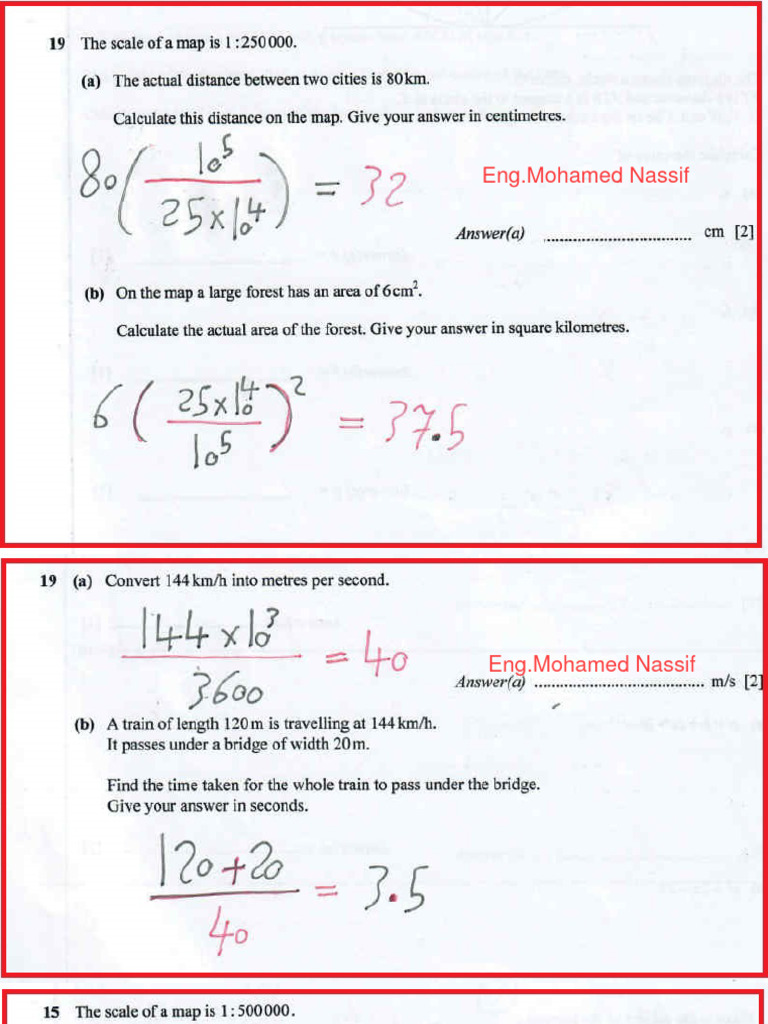 19 The scale of a map is 1 : 250 000.
(a) The actual distance between two cities is 80 km.
Calculate this distance on the map. Give your answer in centimetres.
80 ( 10^5 / 25 × 10^4 ) = 32
Eng.Mohamed Nassif
Answer(a) .................................. cm [2]
(b) On the map a large forest has an area of 6 cm².
Calculate the actual area of the forest. Give your answer in square kilometres.
6 ( 25 × 10^4 / 10^5 )² = 37.5
19 (a) Convert 144 km/h into metres per second.
144 × 10³ / 3600 = 40
Eng.Mohamed Nassif
Answer(a) ....................................... m/s [2]
(b) A train of length 120 m is travelling at 144 km/h.
It passes under a bridge of width 20 m.
Find the time taken for the whole train to pass under the bridge.
Give your answer in seconds.
120 + 20 / 40 = 3.5
15 The scale of a map is 1 : 500 000.